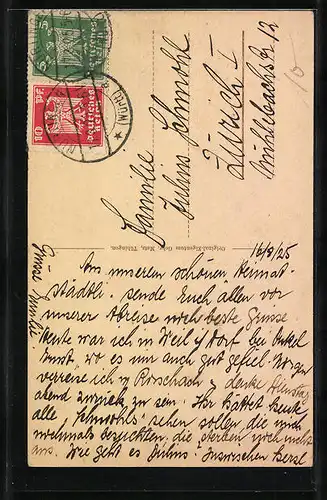 5
Deutsches Reich
10 Pf.
Deutsches Reich
(NÜRT
Familie
Julius Schmohl
Zürich I
Mühlebachstr. 12
10
Original-Eigentum Gebr. Metz, Tübingen.
16/8/25
Aus unserem schönen Heimat-
städtli sende Euch allen vor
unserer Abreise noch beste Grüsse
Heute war ich in Weil i/Dorf bei Onkel
Ernst wo es mir auch gut gefiel. Morgen
verreise ich n. Rorschach, denke Dienstag
abend zurück zu sein. Ihr hättet heute
alle Schmohls sehen sollen die mich
nochmals besichtigten, die sterben noch nicht
aus. Wie geht es Julius. Inzwischen herzl.
Grüsse